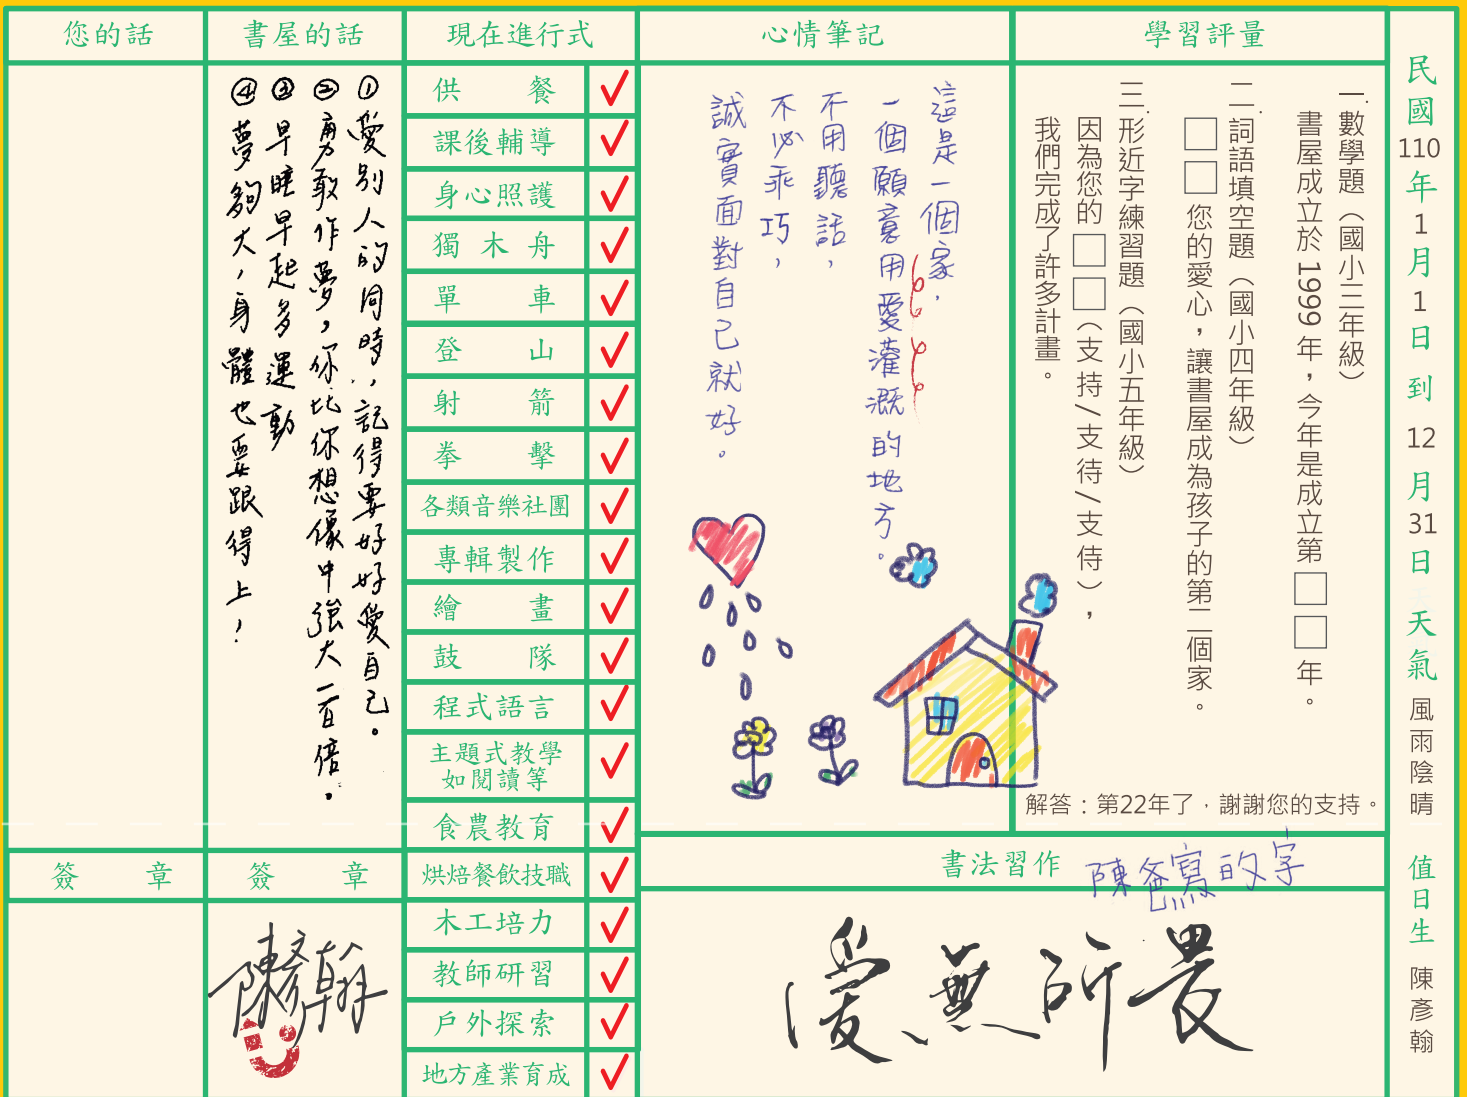 民國110年1月1日到12月31日 天氣 風雨陰晴 值日生 陳彥翰
學習評量
一.數學題（國小三年級）
書屋成立於1999年，今年是成立第□□年。
二.詞語填空題（國小四年級）
□□您的愛心，讓書屋成為孩子的第二個家。
三.形近字練習題（國小五年級）
因為您的□□（支持/支待/支侍），
我們完成了許多計畫。
解答：第22年了，謝謝您的支持。
心情筆記
這是一個家，
一個願意用愛灌溉的地方。
不用聽話，
不必乖巧，
誠實面對自己就好。
書法習作
陳爸寫的字
愛無所畏
現在進行式
供餐
課後輔導
身心照護
獨木舟
單車
登山
射箭
拳擊
各類音樂社團
專輯製作
繪畫
鼓隊
程式語言
主題式教學
如閱讀等
食農教育
烘焙餐飲技職
木工培力
教師研習
戶外探索
地方產業育成
書屋的話
①愛別人的同時，記得要好好愛自己。
②勇敢作夢，你比你想像中強大一百倍。
③早睡早起多運動
④夢夠大，身體也要跟得上！
簽章
陳彥翰
您的話
簽章